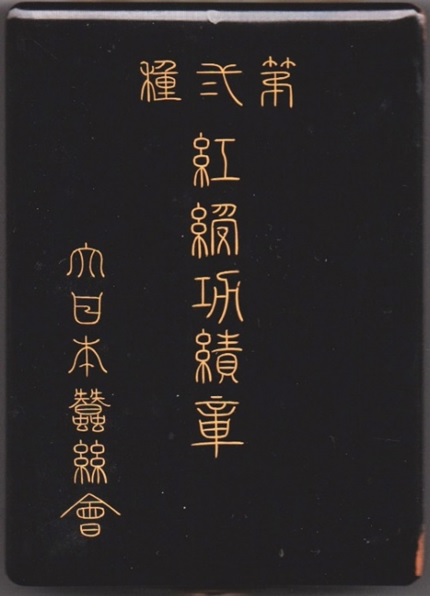 第弐種
紅綬功績章
大日本蠶絲會